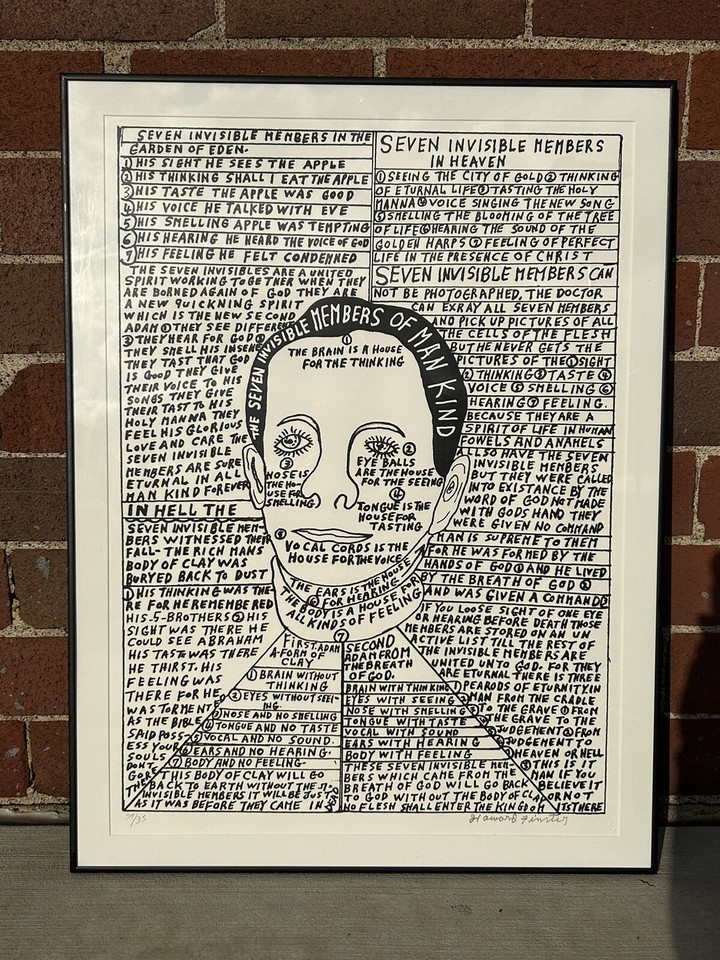 SEVEN INVISIBLE MEMBERS IN THE
GARDEN OF EDEN.
① HIS SIGHT HE SEES THE APPLE
② HIS THINKING SHALL I EAT THE APPLE
③ HIS TASTE THE APPLE WAS GOOD
④ HIS VOICE HE TALKED WITH EVE
⑤ HIS SMELLING APPLE WAS TEMPTING
⑥ HIS HEARING HE HEARD THE VOICE OF GOD
⑦ HIS FEELING HE FELT CONDEMNED
THE SEVEN INVISIBLES ARE A UNITED
SPIRIT WORKING TOGETHER WHEN THEY
ARE BORNED AGAIN OF GOD THEY ARE
A NEW QUICKNING SPIRIT
WHICH IS THE NEW SECOND
ADAM ① THEY SEE DIFFERENT
② THEY HEAR FOR GOD
THEY SMELL HIS INSENCE
THEY TAST THAT GOD
IS GOOD THEY GIVE
THEIR VOICE TO HIS
SONGS THEY GIVE
THEIR TAST TO HIS
HOLY MANNA THEY
FEEL HIS GLORIOUS
LOVE AND CARE THE
SEVEN INVISIBLE
MEMBERS ARE SURE
ETURNAL IN ALL
MAN KIND FOREVER
IN HELL THE
SEVEN INVISIBLE MEM-
BERS WITNESSED THEIR
FALL- THE RICH MANS
BODY OF CLAY WAS
BURYED BACK TO DUST
① HIS THINKING WAS THE
RE FOR HE REMEMBERED
HIS-5-BROTHERS ② HIS
SIGHT WAS THERE HE
COULD SEE ABRAHAM
HIS TASTE WAS THERE
HE THIRST. HIS
FEELING WAS
THERE FOR HE
WAS TORMENTED
AS THE BIBLE
SAID POSS-
ESS YOUR
SOULS
DONT
SEVEN INVISIBLE MEMBERS
IN HEAVEN
① SEEING THE CITY OF GOLD ② THINKING
OF ETURNAL LIFE ③ TASTING THE HOLY
MANNA ④ VOICE SINGING THE NEW SONG
⑤ SMELLING THE BLOOMING OF THE TREE
OF LIFE ⑥ HEARING THE SOUND OF THE
GOLDEN HARPS ⑦ FEELING OF PERFECT
LIFE IN THE PRESENCE OF CHRIST
SEVEN INVISIBLE MEMBERS CAN
NOT BE PHOTOGRAPHED, THE DOCTOR
CAN EXRAY ALL SEVEN MEMBERS
AND PICK UP PICTURES OF ALL
THE CELLS OF THE FLESH
BUT HE NEVER GETS THE
PICTURES OF THE ① SIGHT
② THINKING ③ TASTE ④
VOICE ⑤ SMELLING ⑥
HEARING ⑦ FEELING.
BECAUSE THEY ARE A
SPIRIT OF LIFE IN HUMAN
FOWELS AND ANAMELS
ALLSO HAVE THE SEVEN
INVISIBLE MEMBERS
BUT THEY WERE CALLED
INTO EXISTANCE BY THE
WORD OF GOD NOT MADE
WITH GODS HAND THEY
WERE GIVEN NO COMMAND
MAN IS SUPREME TO THEM
FOR HE WAS FORMED BY THE
HANDS OF GOD AND HE LIVED
BY THE BREATH OF GOD
AND WAS GIVEN A COMMAND
IF YOU LOOSE SIGHT OF ONE EYE
OR HEARING BEFORE DEATH THOSE
MEMBERS ARE STORED ON AN UN
ACTIVE LIST TILL THE REST OF
THE INVISIBLE MEMBERS ARE
UNITED UNTO GOD. FOR THEY
ARE ETURNAL THERE IS THREE
PEARODS OF ETURNITY. IN
MAN FROM THE CRADLE
TO THE GRAVE ② FROM
THE GRAVE TO THE
JUDGEMENT ③ FROM
JUDGEMENT TO
HEAVEN OR HELL
THIS IS IT
MAN IF YOU
BELIEVE IT
OR NOT
ITS THERE
THE SEVEN INVISIBLE MEMBERS OF MAN KIND
①
THE BRAIN IS A HOUSE
FOR THE THINKING
②
EYE BALLS
ARE THE HOUSE
FOR THE SEEING
③
NOSE IS
THE HO-
USE FOR
SMELLING
④
TONGUE IS THE
HOUSE FOR
TASTING
VOCAL CORDS IS THE
HOUSE FOR THE VOICE
THE EARS IS THE HOUSE
⑥ FOR HEARING
THE BODY IS A HOUSE FOR
ALL KINDS OF FEELING
⑦
FIRST. ADAM
A FORM OF
CLAY
① BRAIN WITHOUT
THINKING
② EYES WITHOUT SEEI-
NG.
③ NOSE AND NO SMELLING
④ TONGUE AND NO TASTE
⑤ VOCAL AND NO SOUND.
⑥ EARS AND NO HEARING.
⑦ BODY AND NO FEELING-
THIS BODY OF CLAY WILL GO
BACK TO EARTH WITHOUT THE 7-
INVISIBLE MEMBERS IT WILL BE JUST
AS IT WAS BEFORE THEY CAME IN
SECOND
ADAM FROM
THE BREATH
OF GOD.
BRAIN WITH THINKING
EYES WITH SEEING
NOSE WITH SMELLING
TONGUE WITH TASTE
VOCAL WITH SOUND
EARS WITH HEARING
BODY WITH FEELING
THESE SEVEN INVISIBLE MEM-
BERS WHICH CAME FROM THE
BREATH OF GOD WILL GO BACK
TO GOD WITHOUT THE BODY OF CLAY
NO FLESH SHALL ENTER THE KINGDOM
Howard Finster